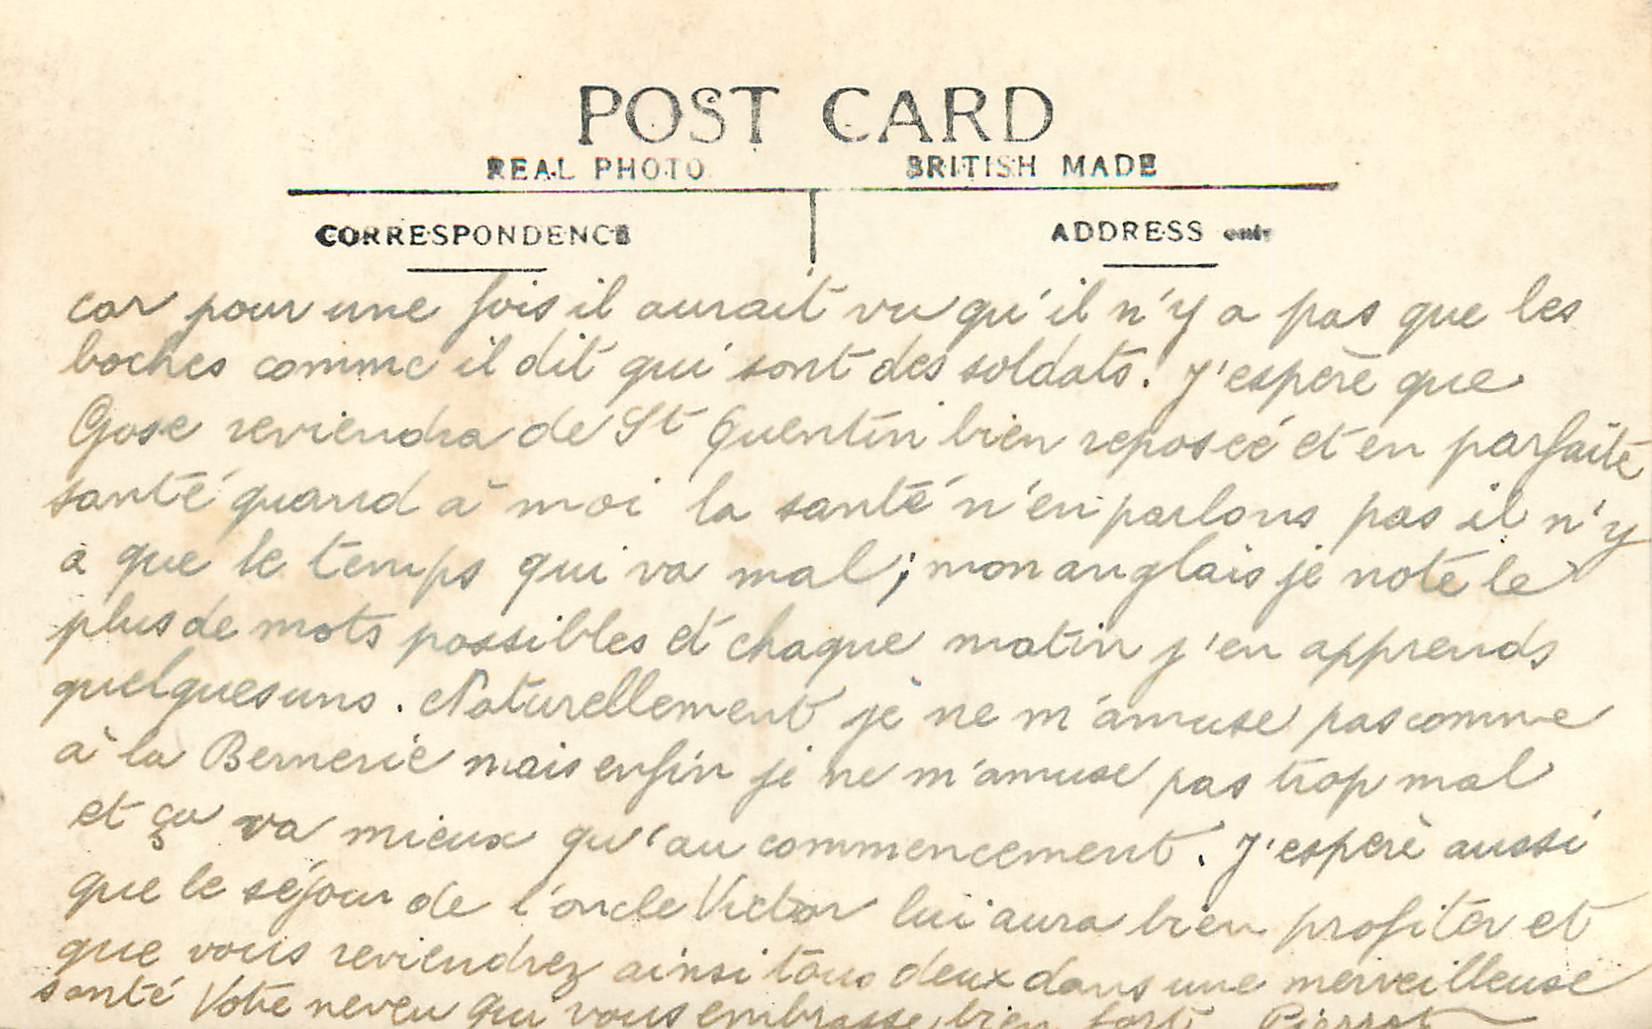 POST CARD
REAL PHOTO BRITISH MADE
CORRESPONDENCE ADDRESS only
car pour une fois il aurait vu qu'il n'y a pas que les
boches comme il dit qui sont des soldats. J'espère que
Gose reviendra de St Quentin bien reposeé et en parfaite
santé quand à moi la santé n'en parlons pas il n'y
a que le temps qui va mal; mon anglais je note le
plus de mots possibles et chaque matin j'en apprends
quelquesuns. Naturellement je ne m'amuse pas comme
à la Bernerie mais enfin je ne m'amuse pas trop mal
et ça va mieux qu'au commencement. J'espère aussi
que le séjour de l'oncle Victor lui aura bien profiter et
que vous reviendrez ainsi tous deux dans une merveilleuse
santé Votre neveu qui vous embrasse bien fort Pierrot